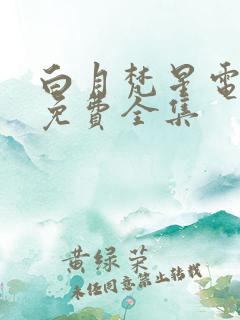 白月梵星電
免費全集
黄绿荣
未经同意禁止转载